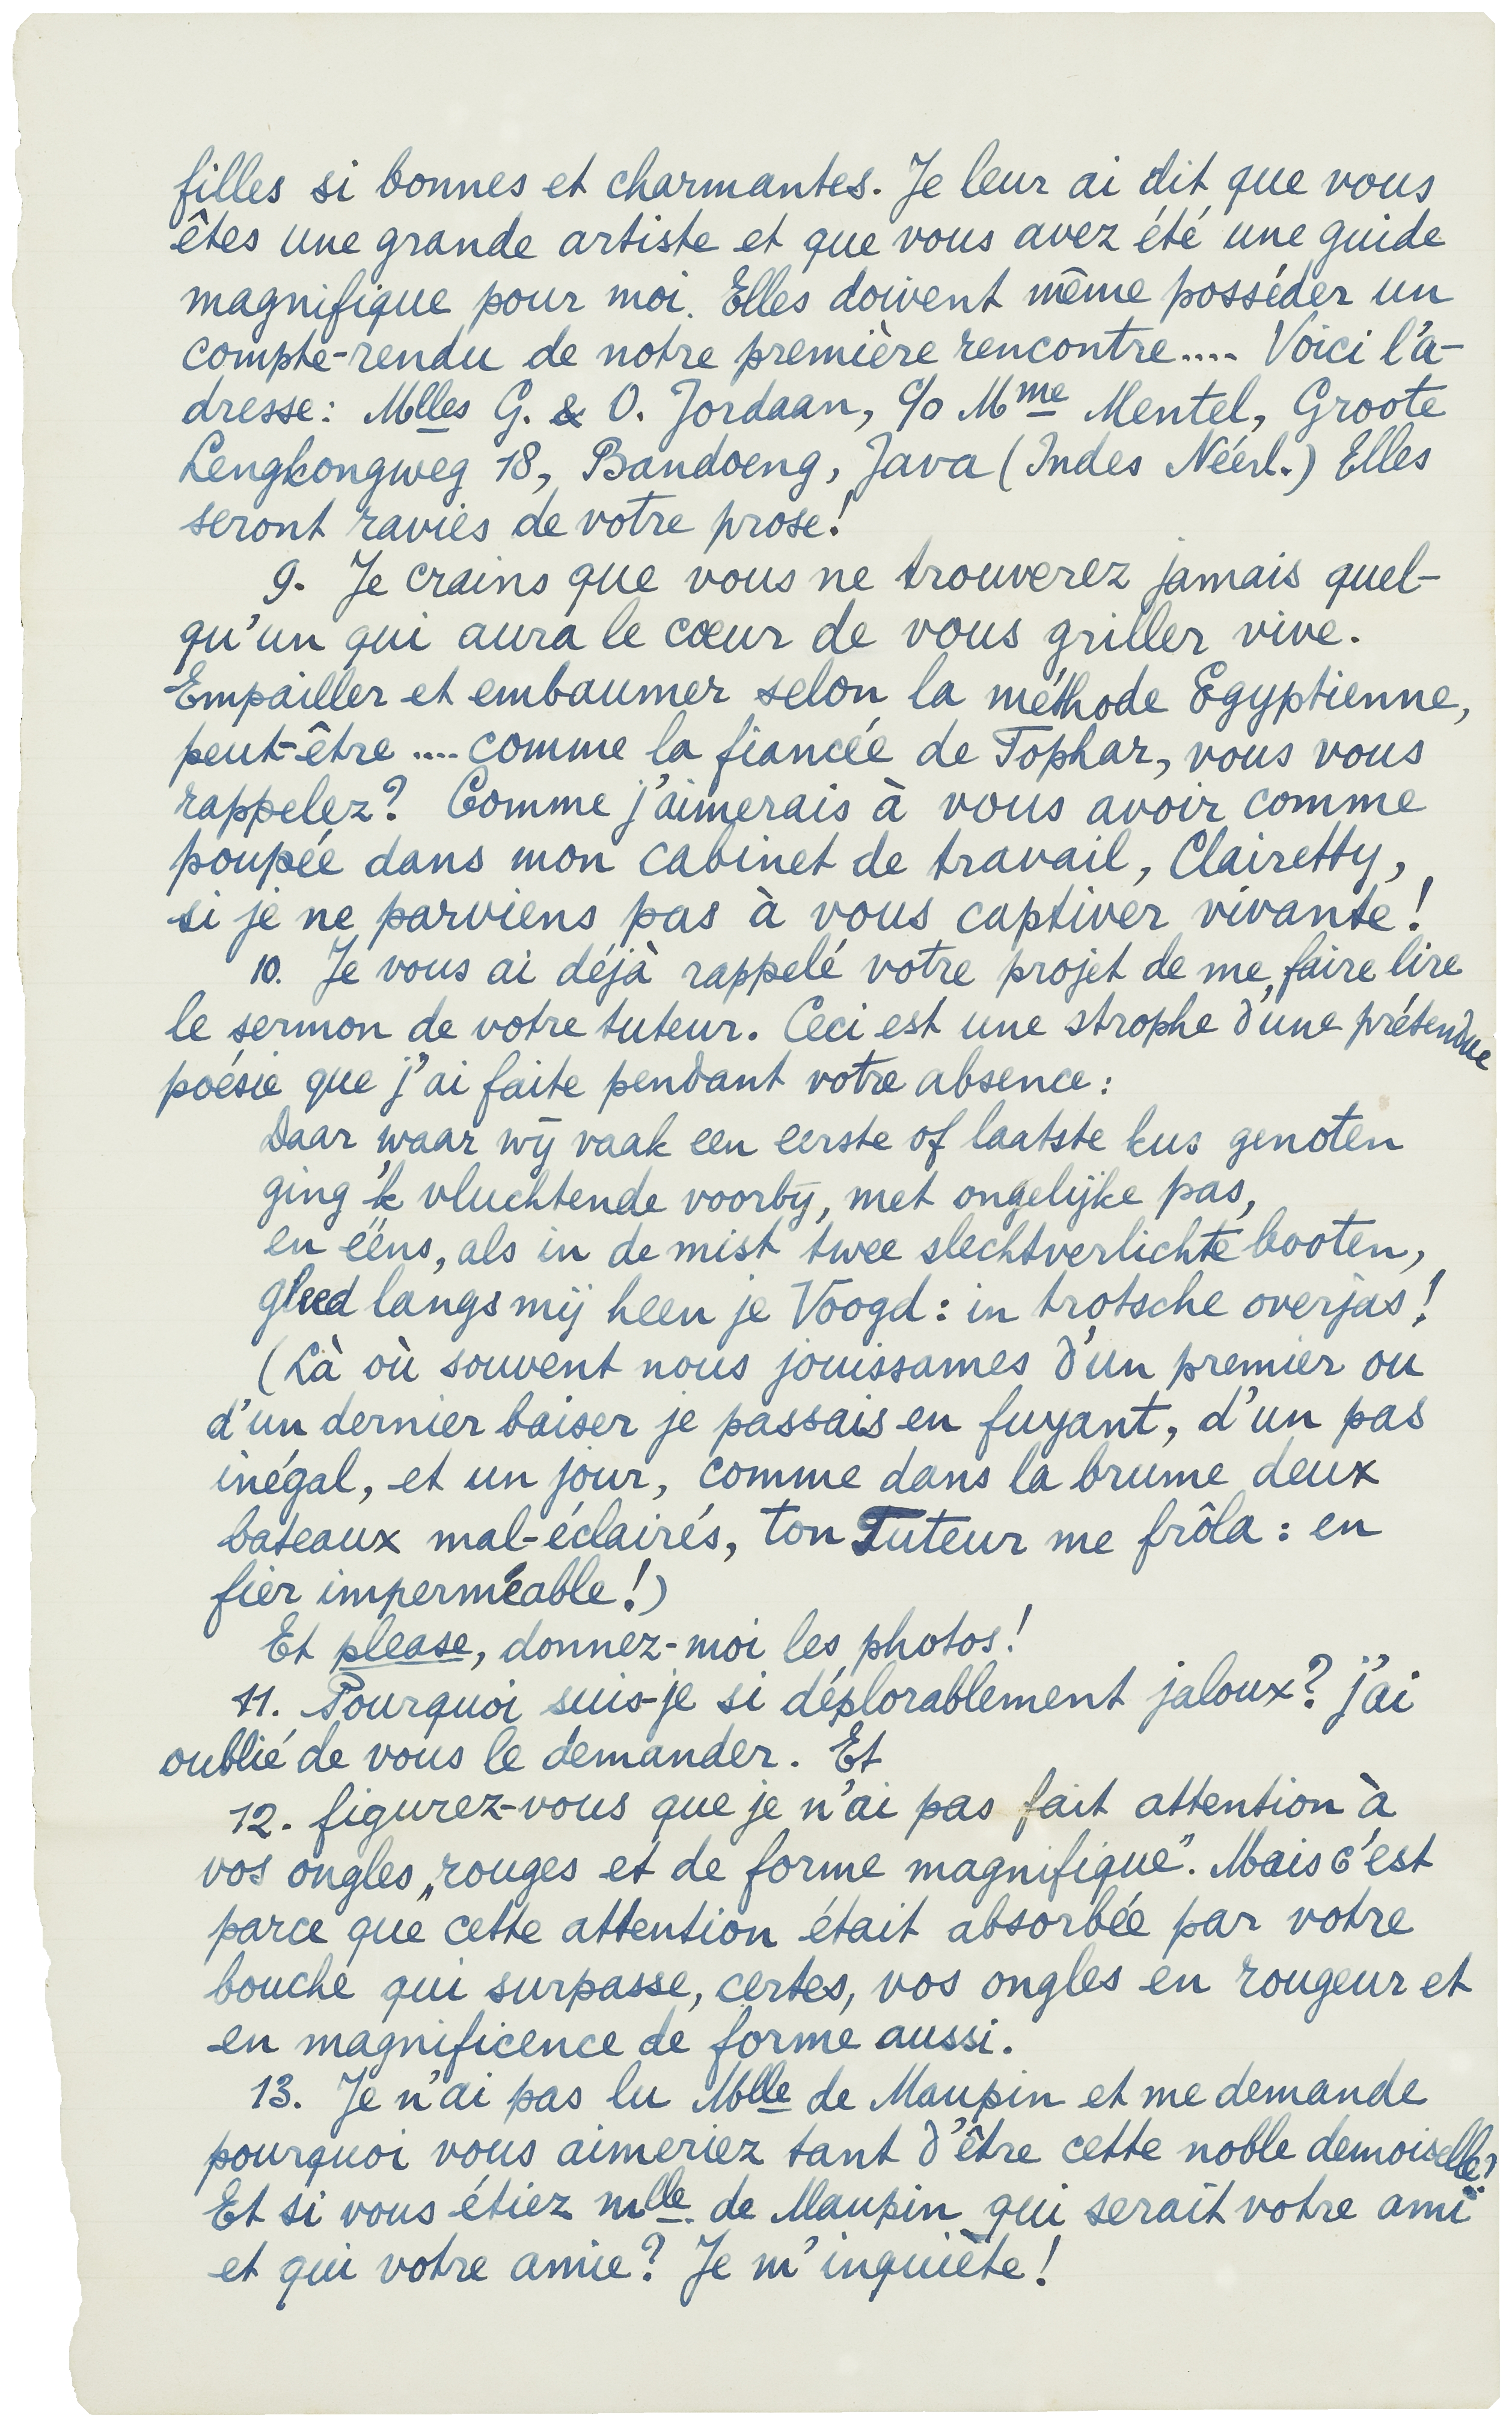 filles si bonnes et charmantes. Je leur ai dit que vous
êtes une grande artiste et que vous avez été une guide
magnifique pour moi. Elles doivent même posséder un
compte-rendu de notre première rencontre.... Voici l'a-
dresse: Mlles G. & O. Jordaan, c/o Mme Mentel, Groote
Lengkongweg 18, Bandoeng, Java (Indes Néérl.) Elles
seront ravies de votre prose!
9. Je crains que vous ne trouverez jamais quel-
qu'un qui aura le cœur de vous griller vive.
Empailler et embaumer selon la méthode Egyptienne,
peut-être .... comme la fiancée de Tophar, vous vous
rappelez? Comme j'aimerais à vous avoir comme
poupée dans mon cabinet de travail, Clairetty,
si je ne parviens pas à vous captiver vivante!
10. Je vous ai déjà rappelé votre projet de me faire lire
le sermon de votre tuteur. Ceci est une strophe d'une prétendue
poésie que j'ai faite pendant votre absence:
Daar waar wij vaak een eerste of laatste kus genoten
ging 'k vluchtende voorbij, met ongelijke pas,
en ééns, als in de mist twee slechtverlichte booten,
gleed langs mij heen je Voogd: in trotsche overjas!
(Là où souvent nous jouissames d'un premier ou
d'un dernier baiser je passais en fuyant, d'un pas
inégal, et un jour, comme dans la brume deux
bateaux mal-éclairés, ton Tuteur me frôla: en
fier imperméable!)
Et please, donnez-moi les photos!
11. Pourquoi suis-je si déplorablement jaloux? j'ai
oublié de vous le demander. Et
12. figurez-vous que je n'ai pas fait attention à
vos ongles „rouges et de forme magnifique". Mais c'est
parce que cette attention était absorbée par votre
bouche qui surpasse, certes, vos ongles en rougeur et
en magnificence de forme aussi.
13. Je n'ai pas lu Mlle de Maupin et me demande
pourquoi vous aimeriez tant d'être cette noble demoiselle?
Et si vous étiez Mlle. de Maupin qui serait votre ami
et qui votre amie? Je m'inquiète!